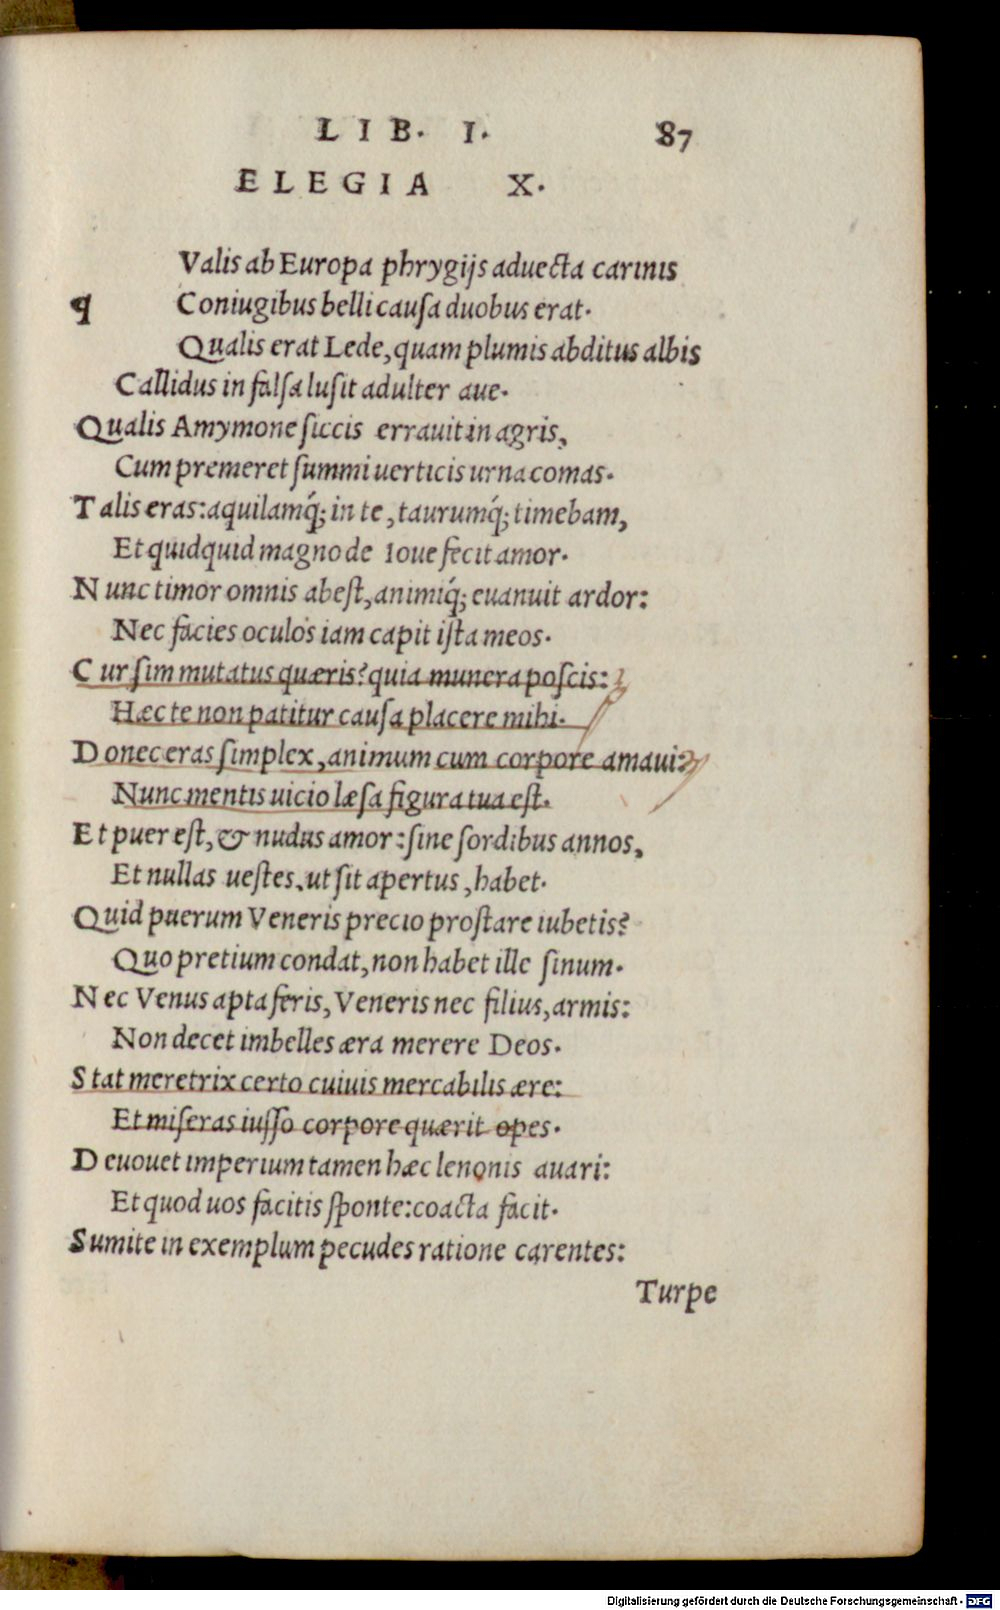 LIB. I. 87
ELEGIA X.
Valis ab Europa phrygijs aduecta carinis
q Coniugibus belli causa duobus erat.
Qualis erat Lede, quam plumis abditus albis
Callidus in falsa lusit adulter aue.
Qualis Amymone siccis errauit in agris,
Cum premeret summi uerticis urna comas.
Talis eras: aquilamq́; in te, taurumq́; timebam,
Et quidquid magno de Ioue fecit amor.
Nunc timor omnis abest, animiq́; euanuit ardor:
Nec facies oculos iam capit ista meos.
Cur sim mutatus quæris? quia munera poscis:
Hæc te non patitur causa placere mihi.
Donec eras simplex, animum cum corpore amaui:
Nunc mentis uicio læsa figura tua est.
Et puer est, & nudus amor: sine sordibus annos,
Et nullas uestes, ut sit apertus, habet.
Quid puerum Veneris precio prostare iubetis?
Quo pretium condat, non habet ille sinum.
Nec Venus apta feris, Veneris nec filius, armis:
Non decet imbelles æra merere Deos.
Stat meretrix certo cuiuis mercabilis ære:
Et miseras iusso corpore quærit opes.
Deuouet imperium tamen hæc lenonis auari:
Et quod uos facitis sponte: coacta facit.
Sumite in exemplum pecudes ratione carentes:
Turpe
Digitalisierung gefördert durch die Deutsche Forschungsgemeinschaft - DFG